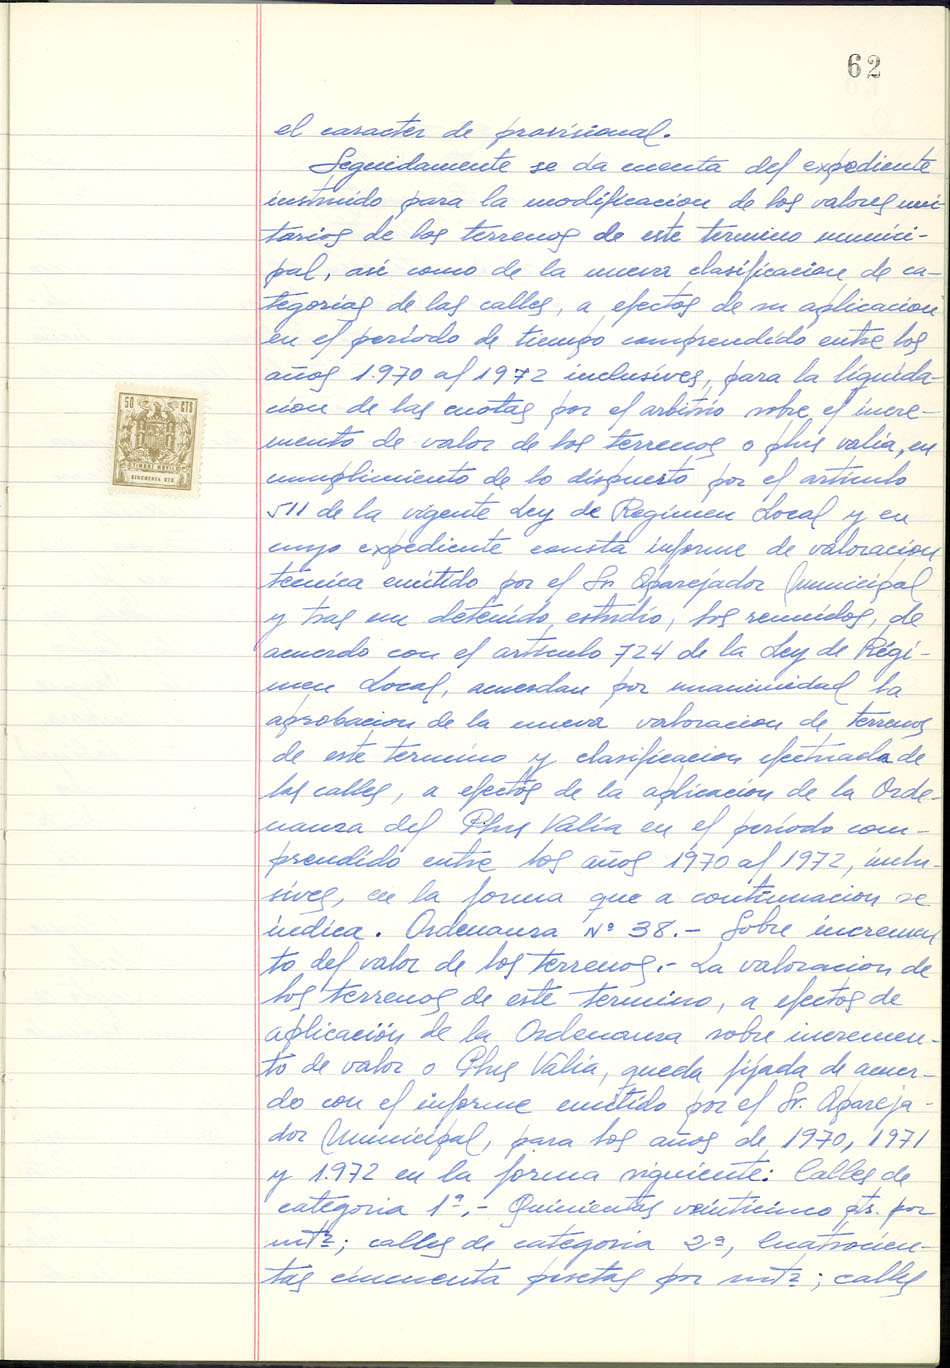 62
el caracter de provisional.
Seguidamente se da cuenta del expediente
instruido para la modificacion de los valores uni-
tarios de los terrenos de este termino munici-
pal, asi como de la nueva clasificacion de ca-
tegorias de las calles, a efectos de su aplicacion
en el período de tiempo comprendido entre los
años 1.970 al 1972 inclusives, para la liquida-
cion de las cuotas por el arbitrio sobre el incre-
mento de valor de los terrenos o plus valia, en
cumplimiento de lo dispuesto por el articulo
511 de la vigente Ley de Regimen Local y en
cuyo expediente consta informe de valoracion
tecnica emitido por el Sr. Aparejador Municipal
y tras un detenido estudio, los reunidos, de
acuerdo con el articulo 724 de la Ley de Régi-
men Local, acuerdan por unanimidad la
aprobacion de la nueva valoracion de terrenos
de este termino y clasificacion efectuada de
las calles, a efectos de la aplicacion de la Orde-
nanza del Plus Valia en el período com-
prendido entre los años 1970 al 1972, inclu-
sives, en la forma que a continuacion se
indica. Ordenanza Nº 38.- Sobre incremen
to del valor de los terrenos.- La valoracion de
los terrenos de este termino, a efectos de
aplicación de la Ordenanza sobre incremen-
to de valor o Plus Valia, queda fijada de acuer-
do con el informe emitido por el Sr. Apareja-
dor Municipal, para los años de 1970, 1971
y 1.972 en la forma siguiente: Calles de
categoria 1ª.- Quinientas veinticinco pts. por
mt²; calles de categoria 2ª, Cuatrocien-
tas cincuenta pesetas por mt²; calles
50 CTS
TIMBRE MOVIL
CINCUENTA CTS